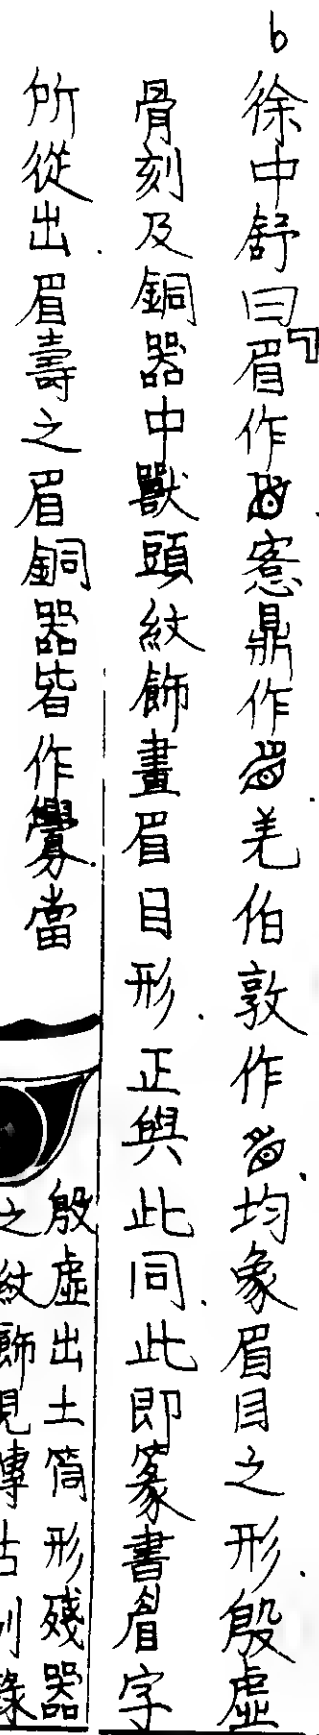 b
徐中舒曰「眉作窓鼎作羌伯敦作均象眉目之形.殷虛
骨刻及銅器中獸頭紋飾畫眉目形.正與此同.此即篆書眉字
所從出.眉壽之眉銅器皆作釁.當
殷虛出土筒形殘器
之紋飾見博古